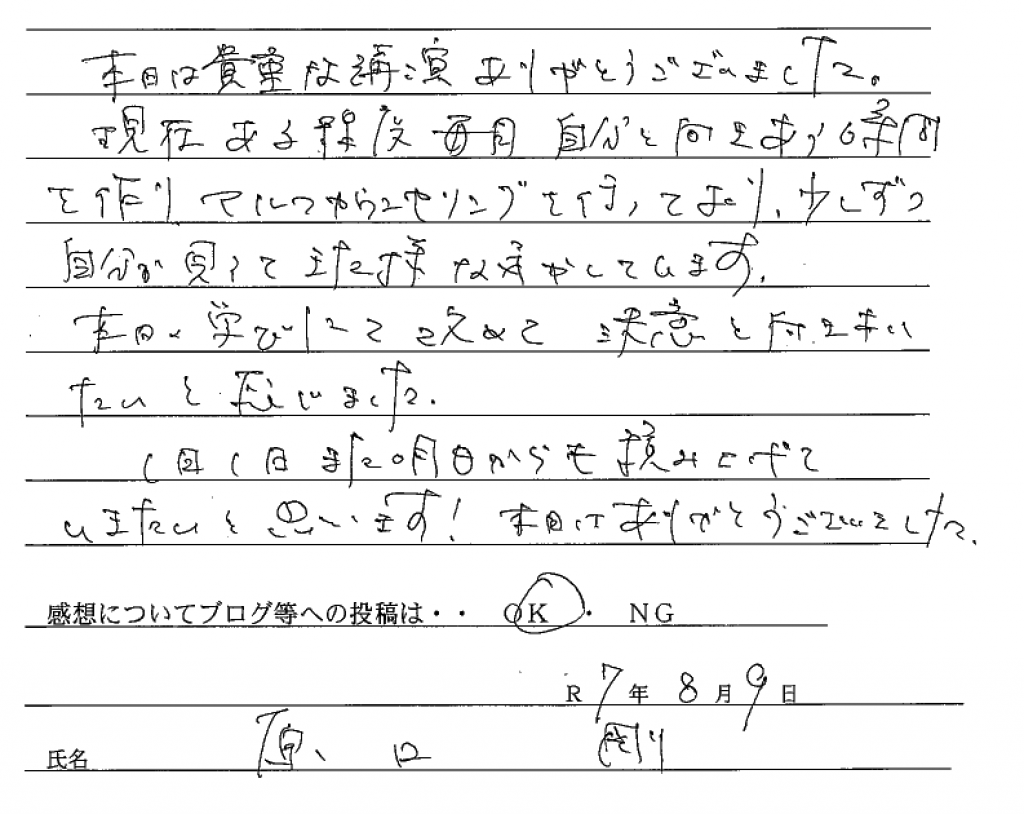 本日は貴重な講演ありがとうございました。
現在ある程度毎月自分と向きあう時間
を作りセルフカウンセリングを行っており、少しずつ
自分が見えてきた様な気がしています。
本日の学びによって改めて決意と向きあい
たいと感じました。
1回1日また0月日からも積み上げて
いきたいと思います!本日はありがとうございました。
感想についてブログ等への投稿は・・ OK ・ NG
R7年8月9日
氏名 原口 剛